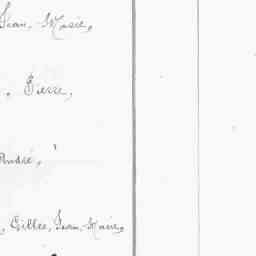 Jean, Marie,
, Pierre,
André,
, Gilles, Jean, Marie,